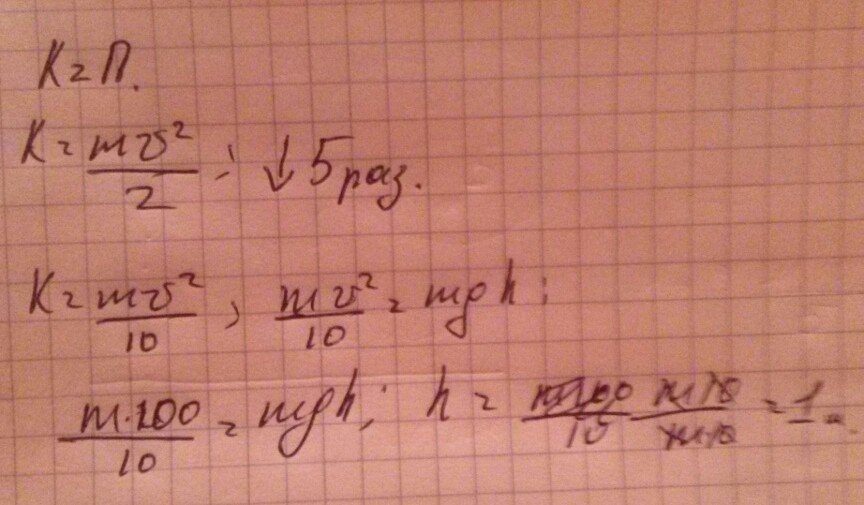 K = П.
K = mv²/2 ; ↓ 5 раз.
K = mv²/10 , mv²/10 = mgh ;
m·100/10 = mgh ; h = m·10/m·10 = 1